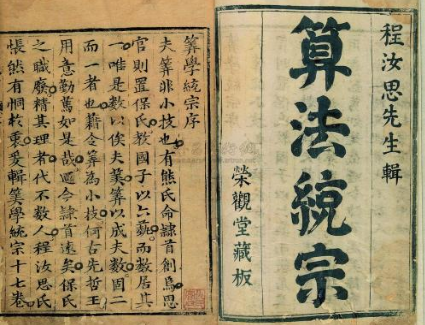 程汝思先生輯
算法統宗
榮觀堂藏板
筭學統宗序
夫筭非小技也有熊氏命隸首創為
官則置保氏教國子以六藝而數居其
一唯是數以俟夫筭筭以成夫數固二
而一者也藉令筭為小技何古先哲王
用意勤篤如是哉迺今隸首遠矣保氏
之職廢精其理者代不數人程汝思氏
悵然有恫於衷爰輯筭學統宗十七卷